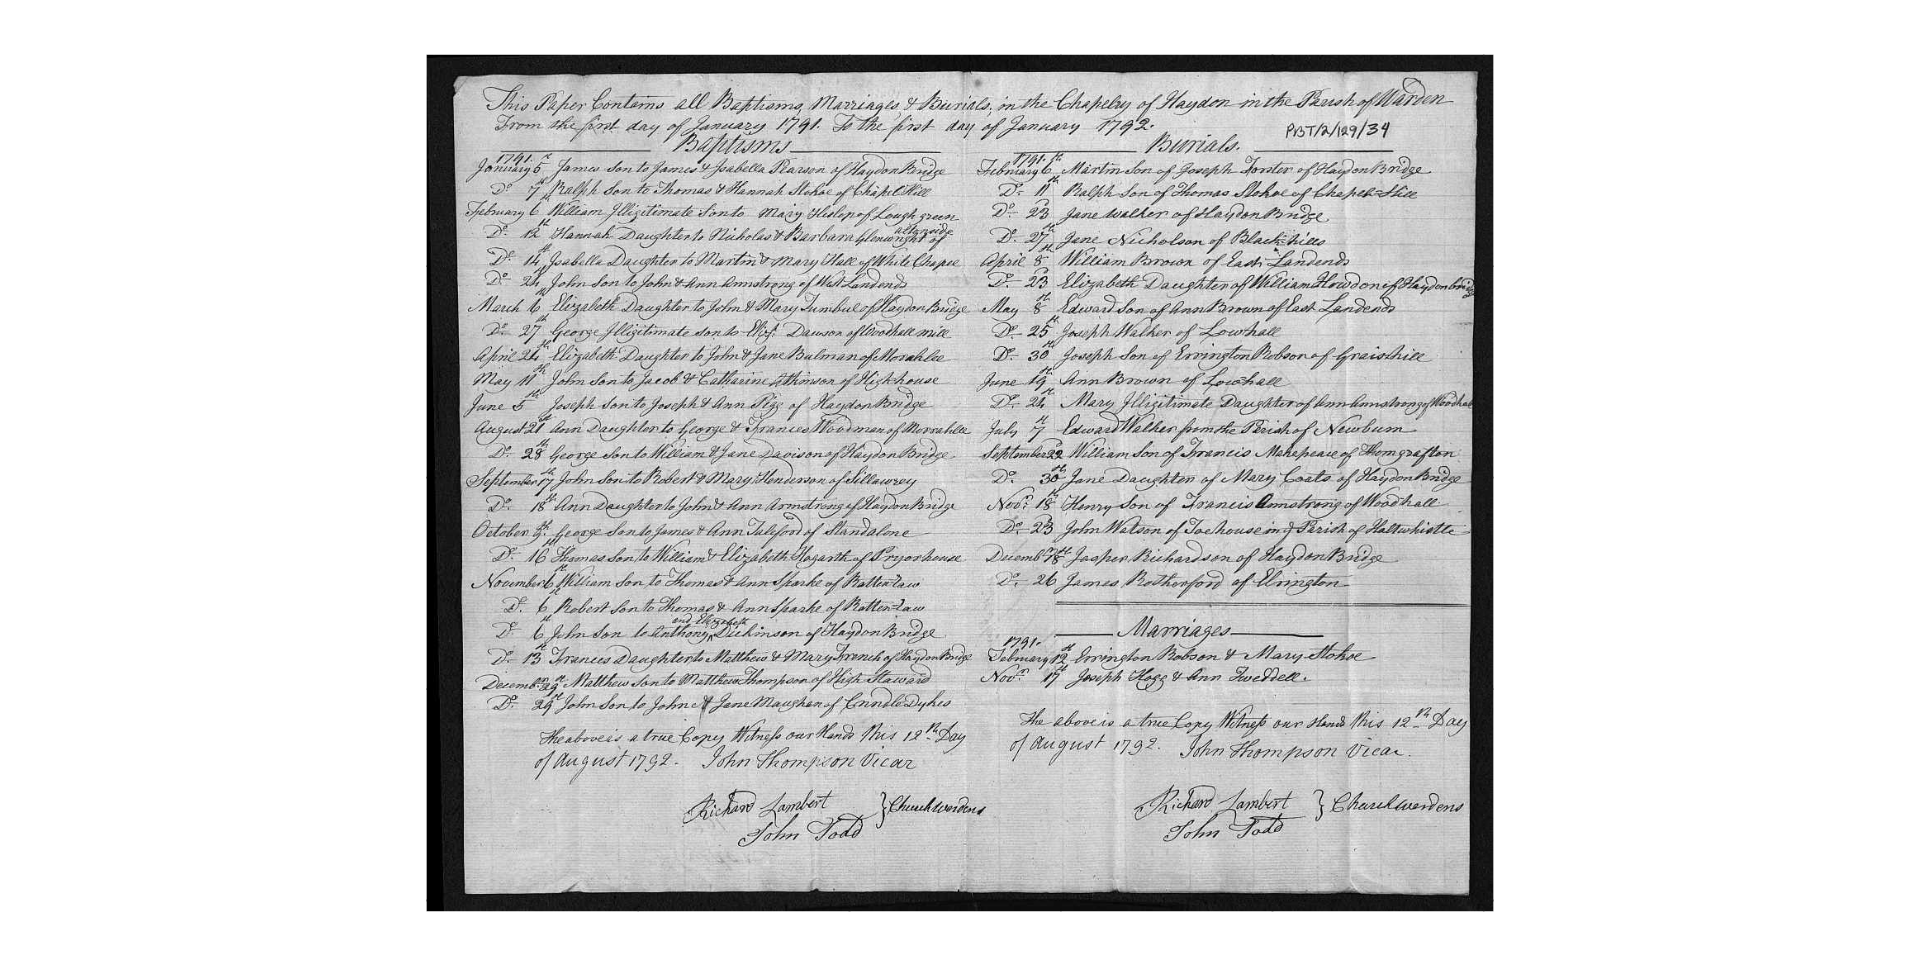 This Paper Contains all Baptisms, Marriages & Burials, in the Chapelry of Haydon in the Parish of Warden
From the first day of January 1791. To the first day of January 1792.
PBT/2/129/34
Baptisms
1791.
January 5th James Son to James & Isabella Pearson of Haydon Bridge
Do 7th Ralph Son to Thomas & Hannah Stokoe of Chapel Hill
February 6th William Illigitimate Son to Mary Heslop of Lough green
Do 12th Hannah Daughter to Nicholas & Barbara Glenwright of
Do 14th Isabella Daughter to Martin & Mary Hall of White Chapel
Do 24th John Son to John & Ann Armstrong of West Landends
March 6th Elizabeth Daughter to John & Mary Turnbul of Haydon Bridge
Do 27th George Illigitimate Son to Eliz. Dawson of Woodhall mill
April 24th Elizabeth Daughter to John & Jane Bulman of Morahlee
May 11th John Son to Jacob & Catharine Atkinson of High-house
June 5th Joseph Son to Joseph & Ann Pigg of Haydon Bridge
August 21st Ann Daughter to George & Frances Woodman of Morrahlee
Do 28th George Son to William & Jane Davison of Haydon Bridge
September 17th John Son to Robert & Mary Henderson of Sillawrey
Do 18th Ann Daughter to John & Ann Armstrong of Haydon Bridge
October 9th George Son to James & Ann Tulford of Standalone
Do 16th Thomas Son to William & Elizabeth Hogarth of Pryorhouse
November 6th William Son to Thomas & Ann Sparke of Ratten=Law
Do 6th Robert Son to Thomas & Ann Sparke of Ratten=Law
Do 6th John Son to Anthony and Elizabeth Dickinson of Haydon Bridge
Do 13th Frances Daughter to Matthew & Mary French of Haydon Bridge
Decembr 29th Matthew Son to Matthew Thompson of High Staward
Do 29th John Son to John & Jane Maughan of Dykes
The above is a true Copy Witness our Hands this 12th Day
of August 1792. John Thompson Vicar
Richard Lambert } Churchwardens
John Todd
Burials.
1791.
February 6th Martin Son of Joseph Forster of Haydon Bridge
Do 11th Ralph Son of Thomas Stokoe of Chapel=Hill
Do 23 Jane Walker of Haydon Bridge
Do 27th Jane Nicholson of Black-hills
April 8th William Brown of East Landends
Do 23 Elizabeth Daughter of William Howdon of Haydon bridge
May 8th Edward Son of Ann Brown of East Landends
Do 25th Joseph Walker of Lowhall
Do 30th Joseph Son of Errington Robson of Graishill
June 19th Ann Brown of Lowhall
Do 24th Mary Illigitimate Daughter of Ann Armstrong of Woodhall
July 7th Edward Walker from the Parish of Newburn
September 22 William Son of Francis Makepeace of Thorngrafton
Do 30th Jane Daughter of Mary Coats of Haydon Bridge
Novr 18th Henry Son of Francis Armstrong of Woodhall
Do 23 John Watson of Toehouse in ye Parish of Haltwhistle
Decembr 18th Jasper Richardson of Haydon Bridge
Do 26 James Rotherford of Elrington
Marriages
1791.
February 12th Errington Robson & Mary Stokoe
Novr 17th Joseph Hogg & Ann Tweddell.
The above is a true Copy Witness our Hands this 12th Day
of August 1792. John Thompson Vicar.
Richard Lambert } Churchwardens
John Todd